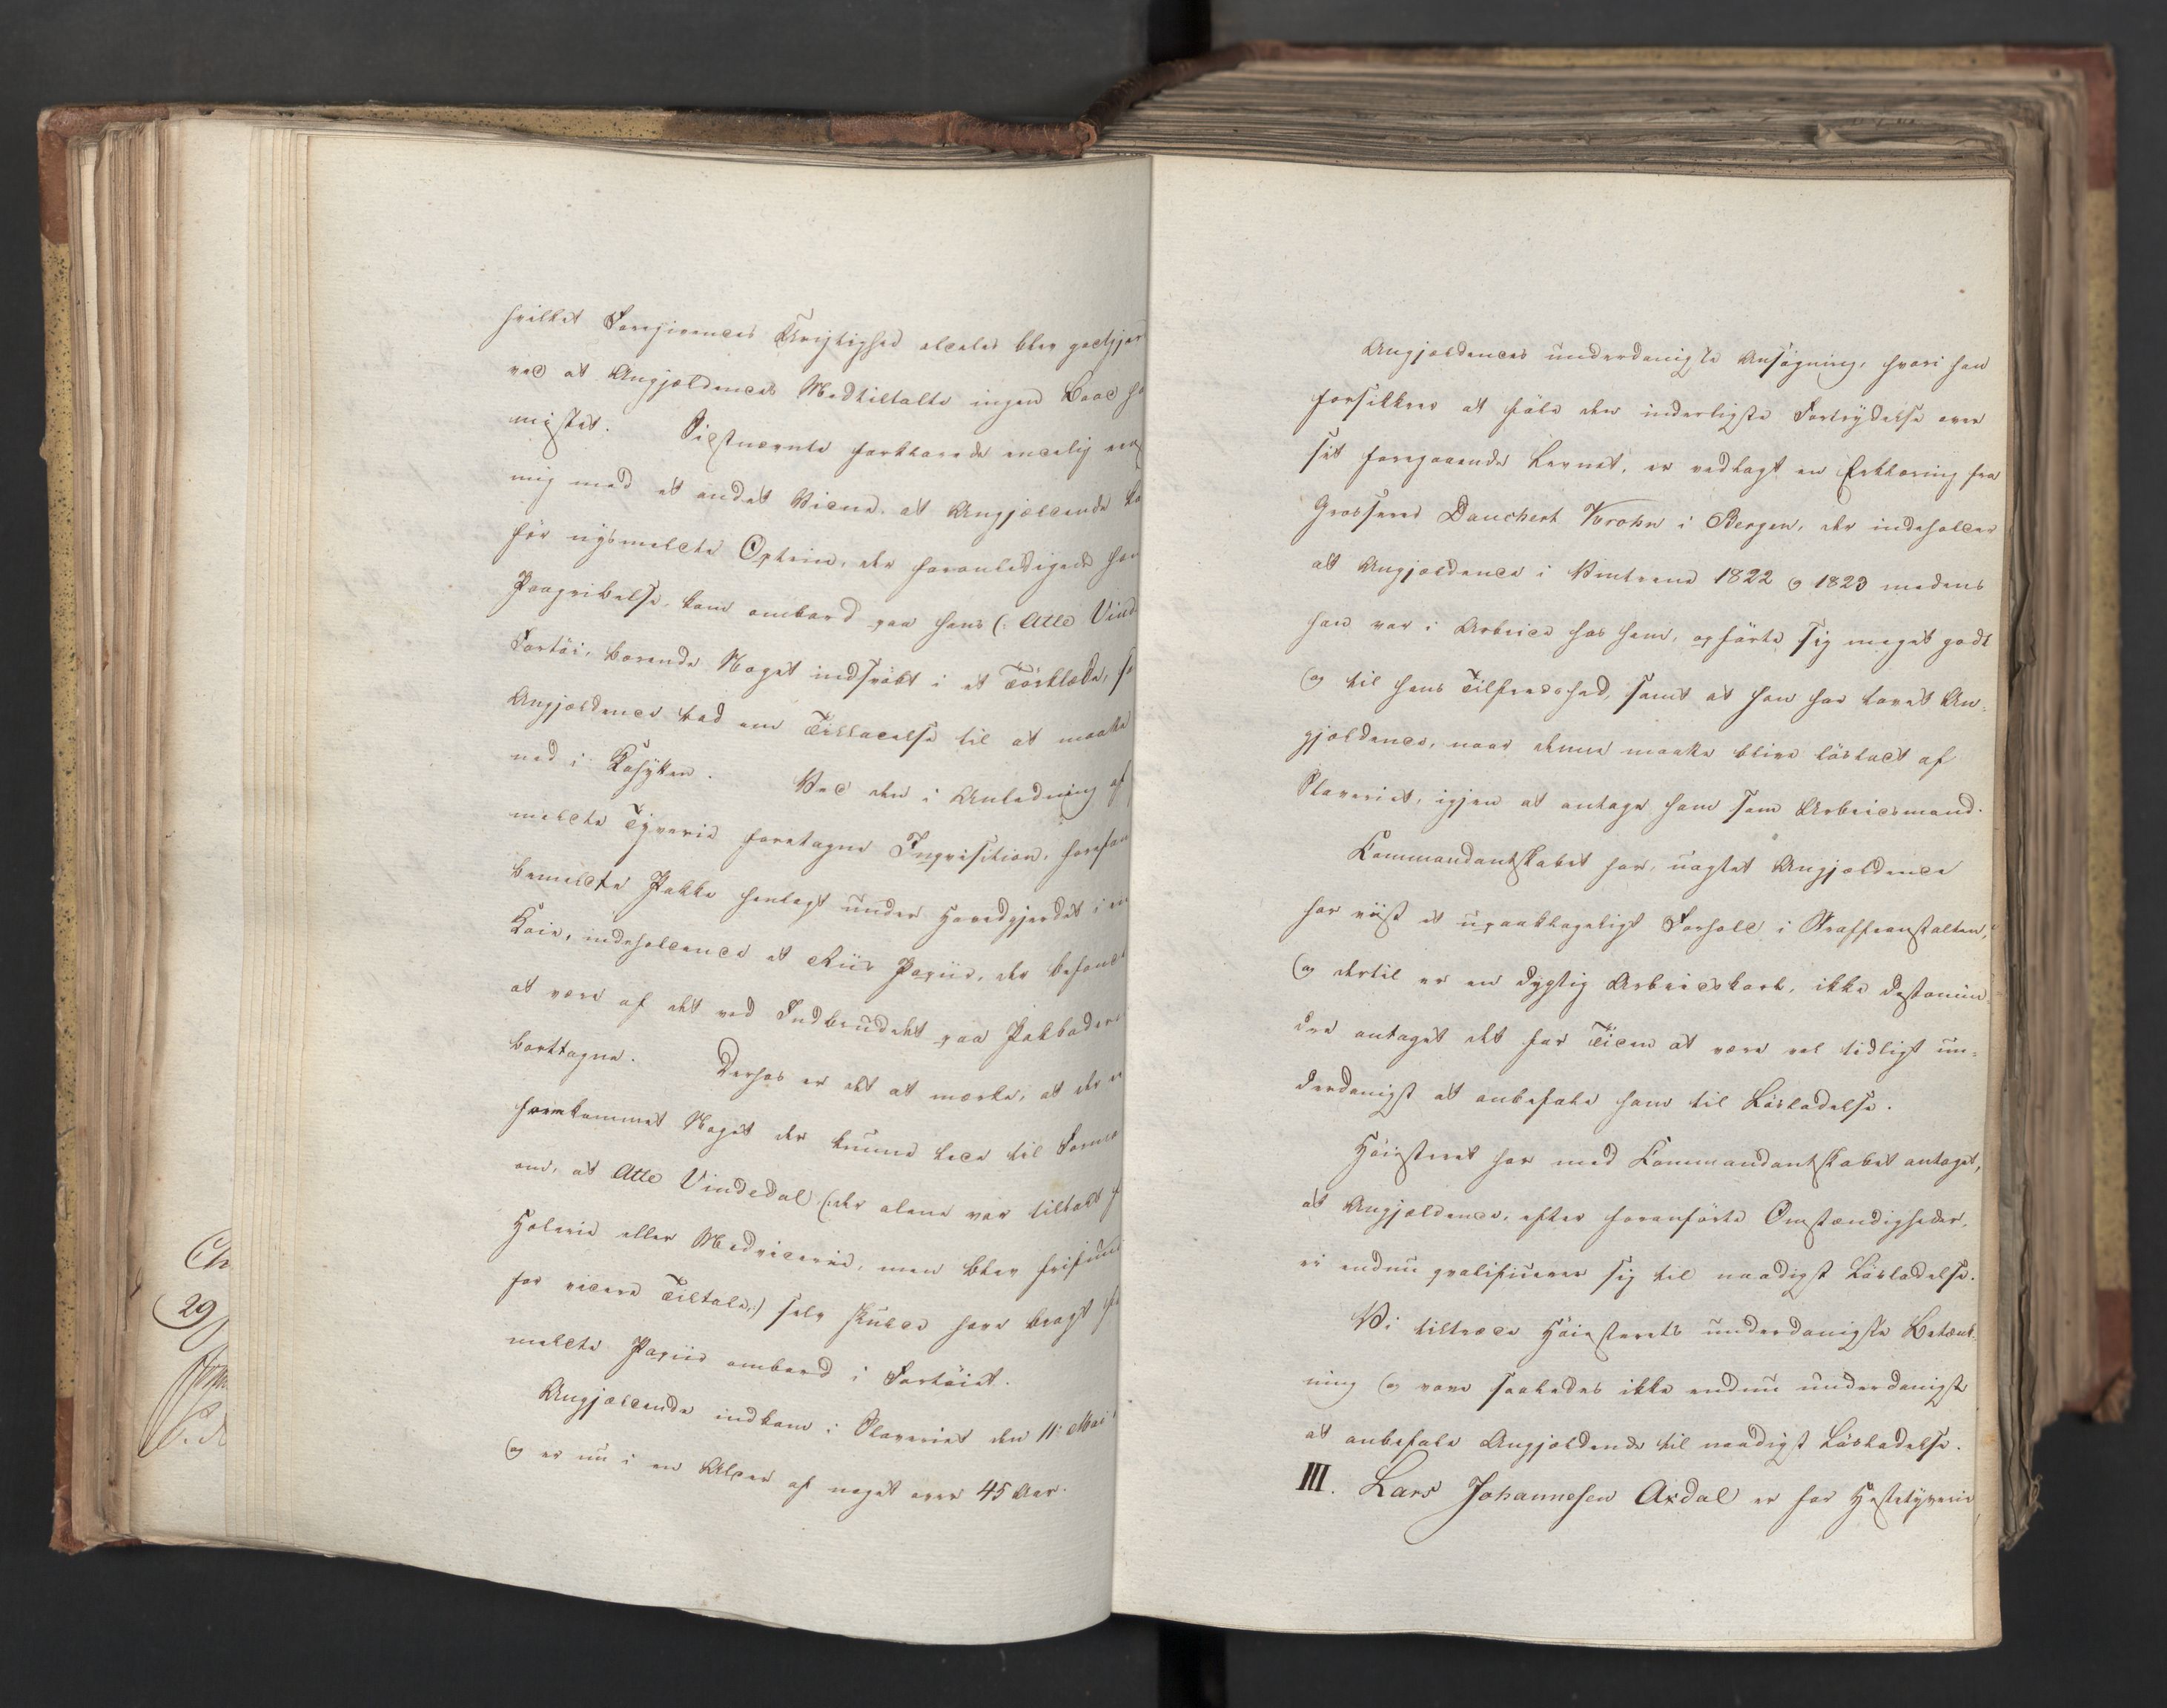 hvilket Foregivendes Urigtighed aldeles blev godtgjor
ved at Angjældendes Medtiltalte ingen Baad ha
mistet. Sidstnævnte forklarede endelig een
mig med et andet Vidne, at Angjældende ko
før nysmeldte Optrin, der foranledigede hans
Paagribelse, kom ombord paa hans (: Atle Vind
Fartøi, bærende Noget indsvøbt i et Tørklæde, so
Angjældende bad om Tilladelse til at maatte
ned i Kahytten. Ved den i Anledning af
meldte Tyverie foretagne Inqvisition, forefan
bemeldte Pakke henlagt under Hovedgjerdet i en
Koie, indeholdende et Riis Papiir, der befandt
at være af det ved Indbruddet paa Pakboden
borttagne. Derhos er det at mærke, at der ei
fremkommet Noget der kunde lede til Forme
om, at Atle Vindedal (:der alene var tiltalt f
Hæleri eller Medviderie, men blev frifunden
for videre Tiltale:) selv skulde have bragt fo
meldte Papiir ombord i Fartøiet.
Angjældende indkom i Slaveriet den 11te Mai
og er nu i en Alder af noget over 45 Aar.
Ch
29
Angjældendes underdanigste Ansøgning, hvori han
forsikkrer at føle den inderligste Fortrydelse over
sit foregaaende Levnet, er vedlagt en Erklæring fra
Grosserer Danchert Krohn i Bergen, der indeholder
at Angjældende i Vintrene 1822 og 1823 medens
han var i Arbeide hos ham, opførte sig meget godt
og til hans Tilfredshed, samt at han har lovet An-
gjældende, naar denne maatte blive løsladt af
Slaveriet, igjen at antage ham som Arbeidsmand.
Commandantskabet har, uagtet Angjældende
har viist et upaaklageligt Forhold i Straffeanstalten,
og dertil er en dygtig Arbeidskarl, ikke destomin-
dre antaget det for Tiden at være vel tidligt un-
derdanigst at anbefale ham til Løsladelse.
Høiesteret har med Commandantskabet antaget,
at Angjældende, efter foranførte Omstændigheder,
ei endnu qvalificerer sig til naadigst Løsladelse.
Vi tiltræde Høiesterets underdanigste Betænk-
ning og vove saaledes ikke endnu underdanigst
at anbefale Angjældende til naadigst Løsladelse.
III. Lars Johannesen Axdal er for Hestetyverie